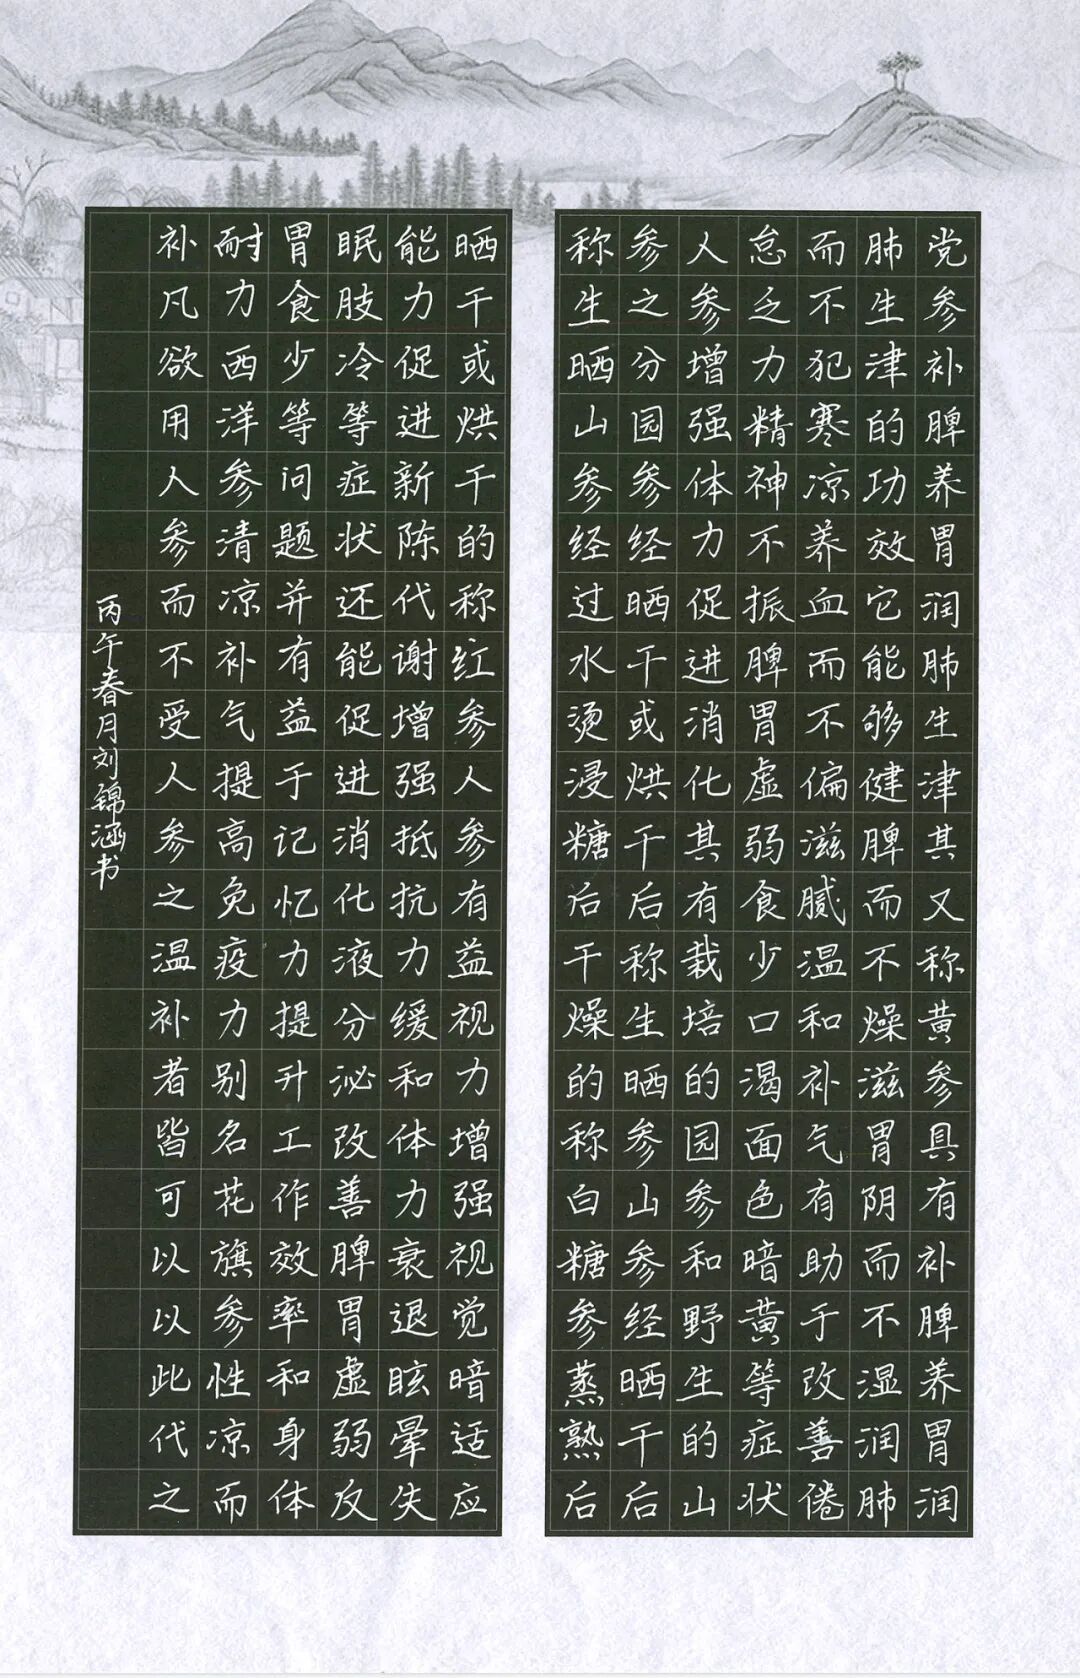 党参补脾养胃润肺生津其又称黄参具有补脾养胃润
肺生津的功效它能够健脾而不燥滋胃阴而不湿润肺
而不犯寒凉养血而不偏滋腻温和补气有助于改善倦
怠乏力精神不振脾胃虚弱食少口渴面色暗黄等症状
人参增强体力促进消化其有栽培的园参和野生的山
参之分园参经晒干或烘干后称生晒参山参经晒干后
称生晒山参经过水烫浸糖后干燥的称白糖参蒸熟后
晒干或烘干的称红参人参有益视力增强视觉暗适应
能力促进新陈代谢增强抵抗力缓和体力衰退眩晕失
眠肢冷等症状还能促进消化液分泌改善脾胃虚弱反
胃食少等问题并有益于记忆力提升工作效率和身体
耐力西洋参清凉补气提高免疫力别名花旗参性凉而
补凡欲用人参而不受人参之温补者皆可以以此代之
丙午春月刘锦涵书